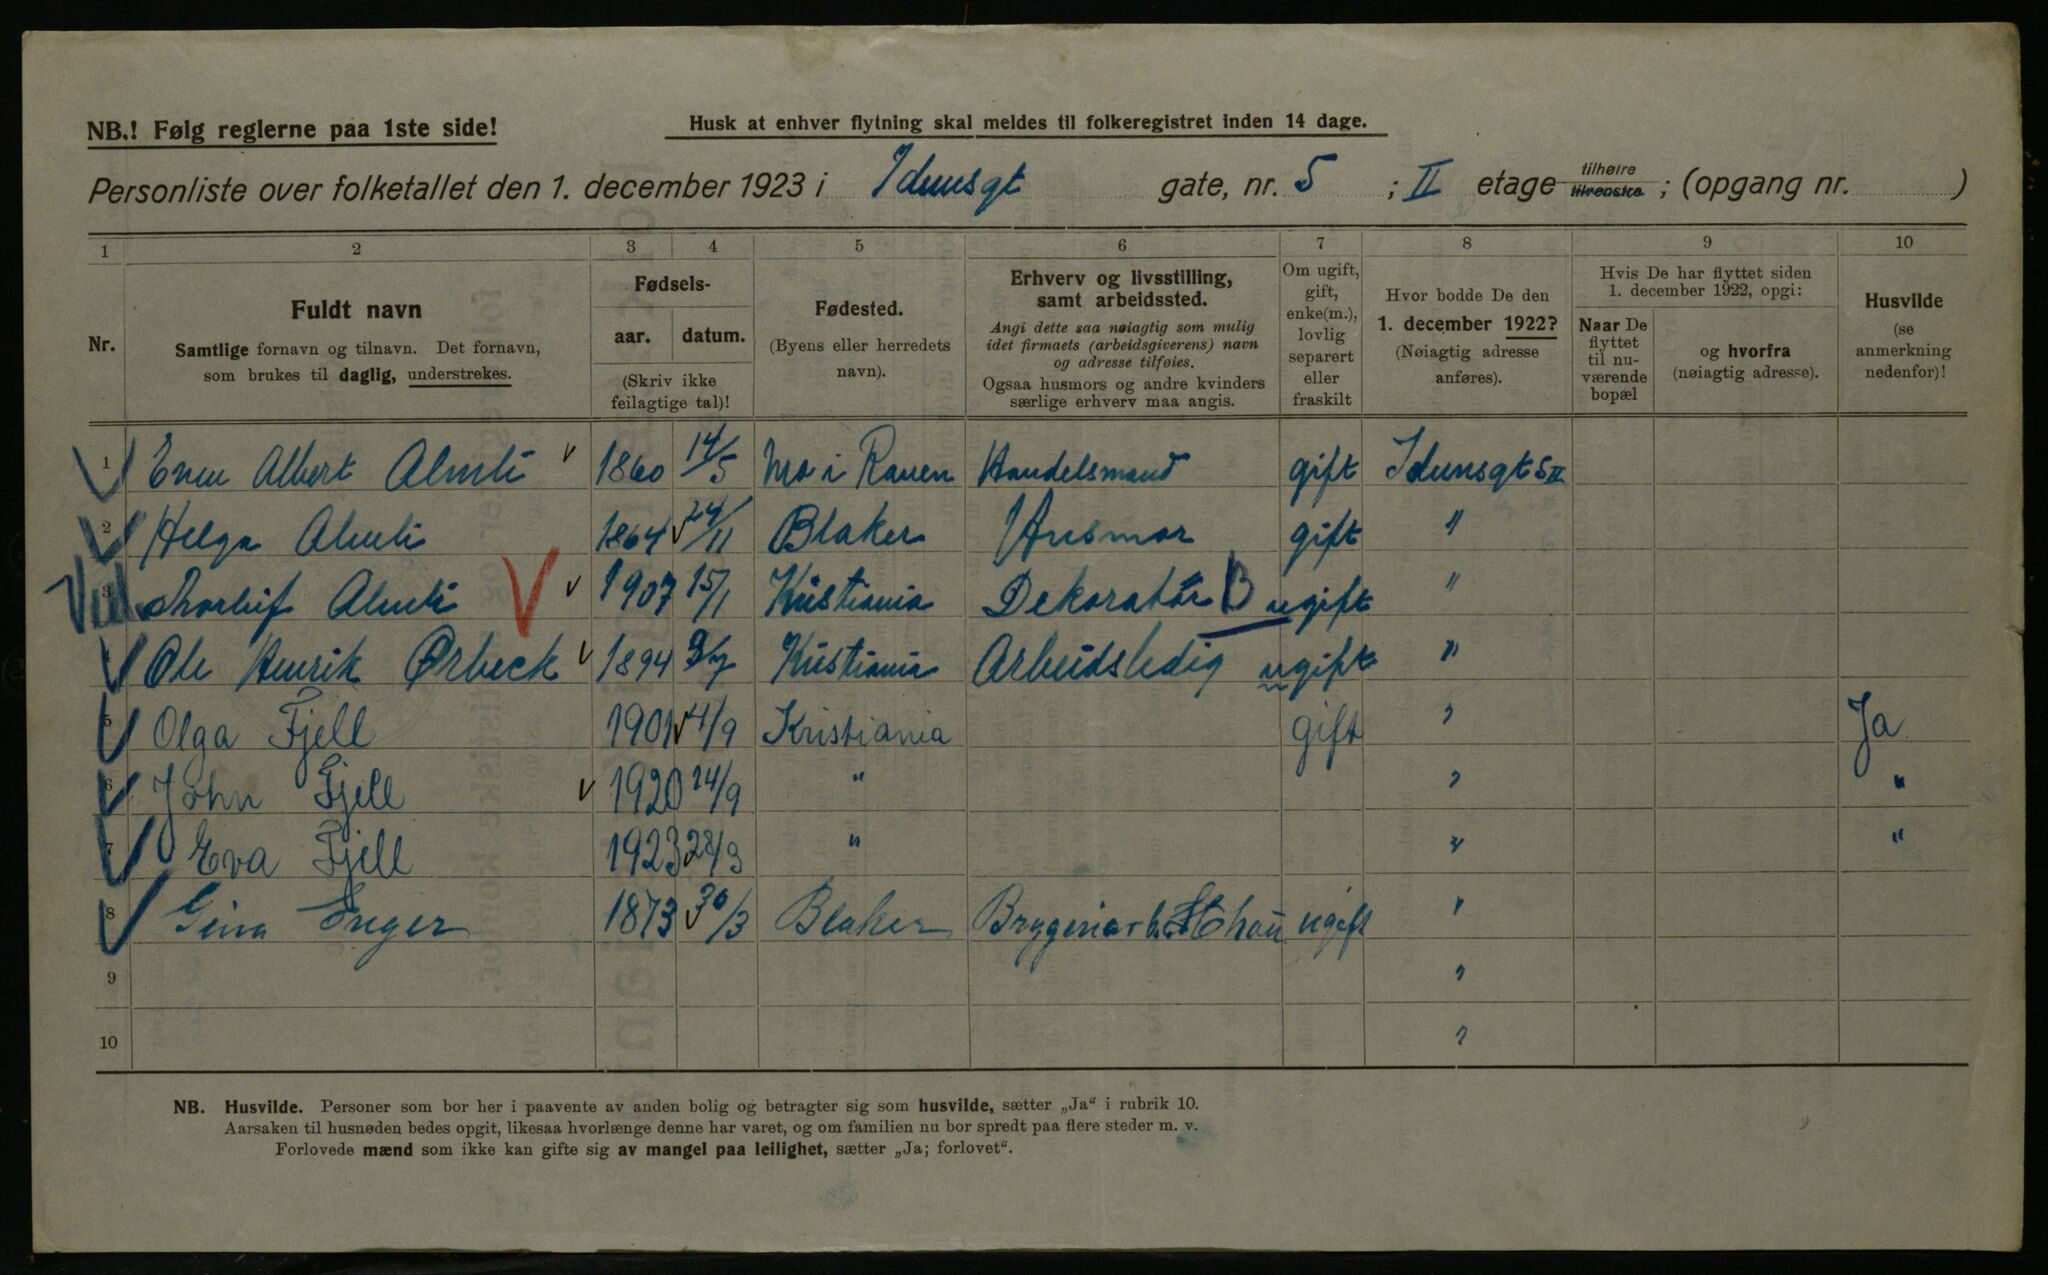 NB.! Følg reglerne paa 1ste side!
Husk at enhver flytning skal meldes til folkeregistret inden 14 dage.
Personliste over folketallet den 1. december 1923 i Idunsgt gate, nr. 5 ; II etage tilhøire tilvenstre ; (opgang nr. )
1 2 3 4 5 6 7 8 9 10
Nr.
Fuldt navn
Samtlige fornavn og tilnavn. Det fornavn,
som brukes til daglig, understrekes.
Fødsels-
aar. datum.
(Skriv ikke
feilagtige tal)!
Fødested.
(Byens eller herredets
navn).
Erhverv og livsstilling,
samt arbeidssted.
Angi dette saa nøiagtig som mulig
idet firmaets (arbeidsgiverens) navn
og adresse tilføies.
Ogsaa husmors og andre kvinders
særlige erhverv maa angis.
Om ugift,
gift,
enke(m.),
lovlig
separert
eller
fraskilt
Hvor bodde De den
1. december 1922?
(Nøiagtig adresse
anføres).
Hvis De har flyttet siden
1. december 1922, opgi:
Naar De
flyttet
til nu-
værende
bopæl
og hvorfra
(nøiagtig adresse).
Husvilde
(se
anmerkning
nedenfor)!
1 Even Albert Almli 1860 14/5 Mo i Ranen Handelsmand gift Idunsgt 5 II
2 Helga Almli 1864 24/11 Blaker Husmor gift "
3 Thorleif Almli 1907 15/1 Kristiania Dekoratør B ugift "
4 Ole Henrik Ørbeck 1894 9/7 Kristiania Arbeidsledig ugift "
5 Olga Fjell 1901 4/9 Kristiania gift " Ja
6 John Fjell 1920 24/9 " " "
7 Eva Fjell 1923 28/3 " " "
8 Gina Enger 1873 30/3 Blaker ugift "
9 "
10 "
NB. Husvilde. Personer som bor her i paavente av anden bolig og betragter sig som husvilde, sætter „Ja“ i rubrik 10.
Aarsaken til husnøden bedes opgit, likesaa hvorlænge denne har varet, og om familien nu bor spredt paa flere steder m. v.
Forlovede mænd som ikke kan gifte sig av mangel paa leilighet, sætter „Ja; forlovet“.